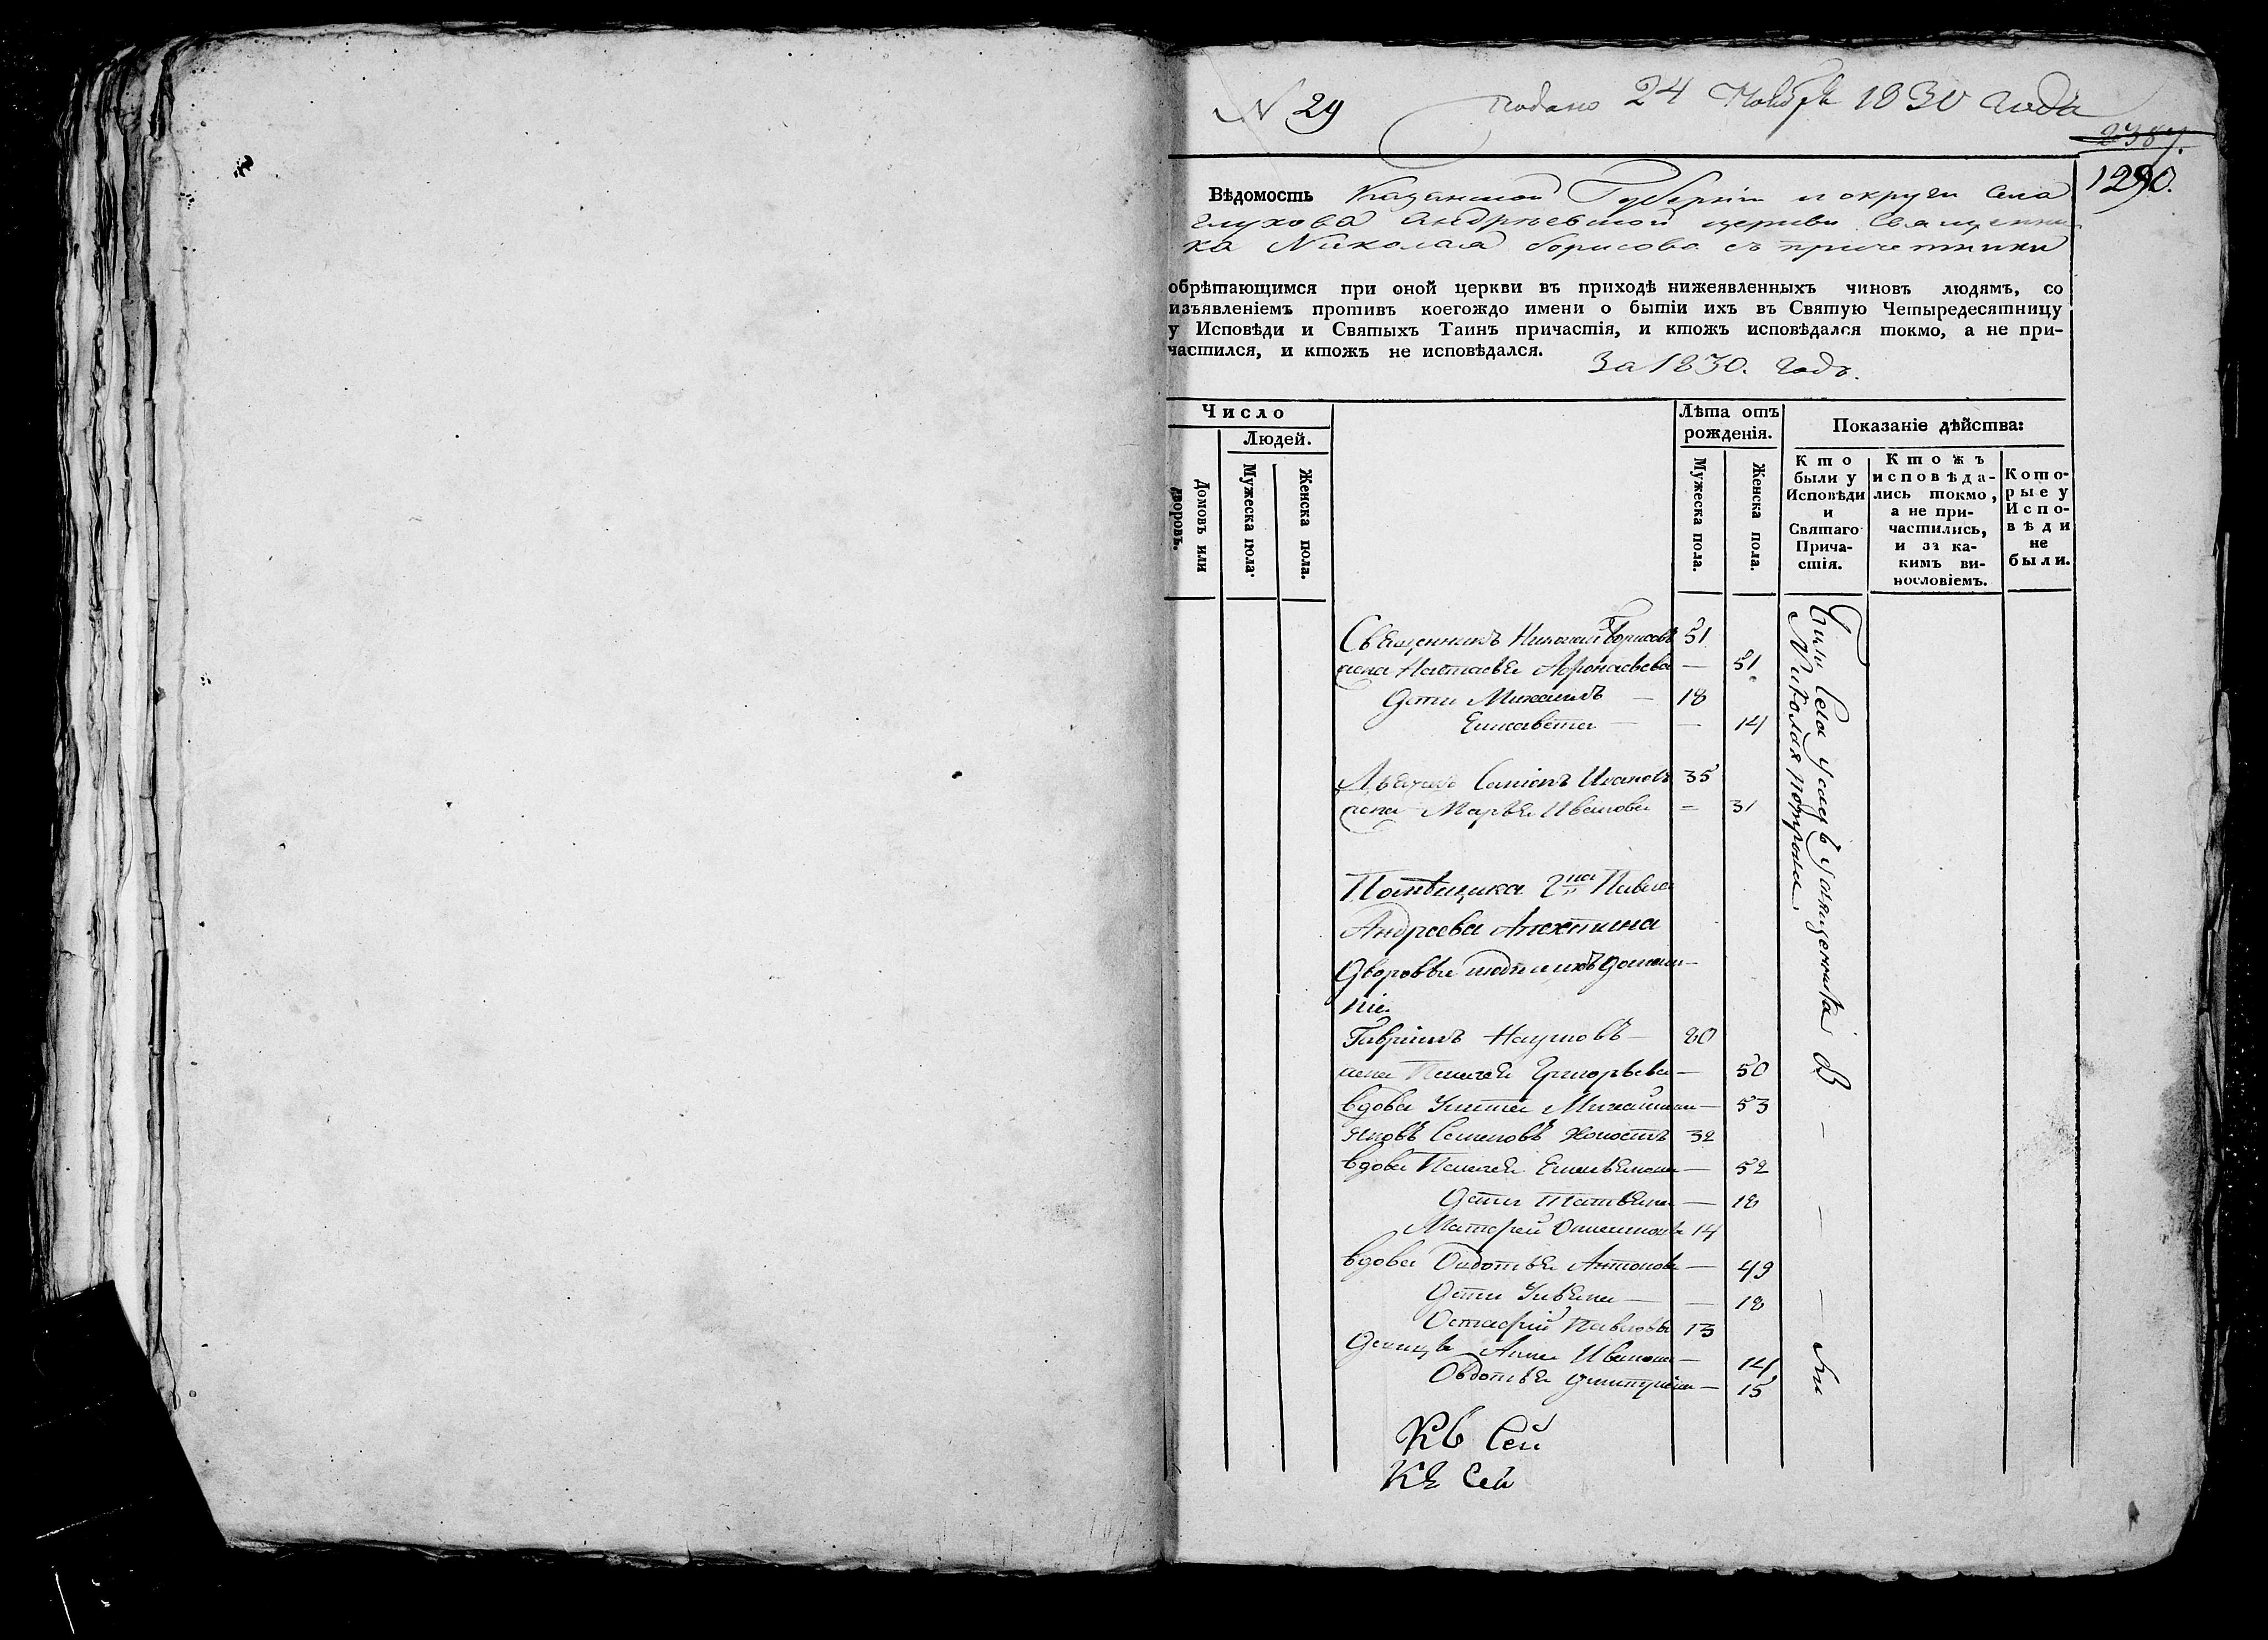 N 29 подано 24 Ноября 1830 года
1290.
Вѣдомость Казанской Губерніи и округи села
глухова андрѣевской церкви Священни
ка Николая борисова съ причетники
обрѣтающимся при оной церкви въ приходѣ нижеявленныхъ чиновъ людямъ, со
изъявленіемъ противъ коегождо имени о бытіи ихъ въ Святую Четыредесятницу
у Исповѣди и Святыхъ Таинъ причастія, и ктожъ исповѣдался токмо, а не при-
частился, и ктожъ не исповѣдался.
За 1830. годъ.
Число
Людей.
Домовъ или
дворовъ.
Мужеска пола.
Женска пола.
Лѣта отъ
рожденія.
Мужеска пола.
Женска пола.
Показаніе дѣйства:
Кто
были у
Исповѣди
и
Святаго
Прича-
стія.
Ктожъ
исповѣда-
лись токмо,
а не при-
частились,
и за ка-
кимъ ви-
нословіемъ.
Кото-
рые у
Испо-
вѣди
не
были.
Священникъ Николай Борисовъ 51
жена Настасья Афонасьева — 51
Дети Михаилъ — 18
Елисавета — — 14
Семіонъ Ивановъ 35
жена Марья Иванова = 31
Помѣщика гна Павла
Андреева Апехтина
Дворовые люди ихъ домаш-
ніе
Гаврiилъ Наумовъ — 80
жена Пелагея Григорьева — 50
вдова Улита Михайлова — 53
Яковъ Семеновъ холостъ 32
вдова Пелагея Емельянова — 52
Дети Татьяна — 18
Матфей 14
вдова Овдотья Антонова — 49
Дети Ульяна — — 18
Остафій Павловъ 13
Девицы Анна Иванова — 14
Овдотья Дмитріева — 15
Были Села у Священника
Николая